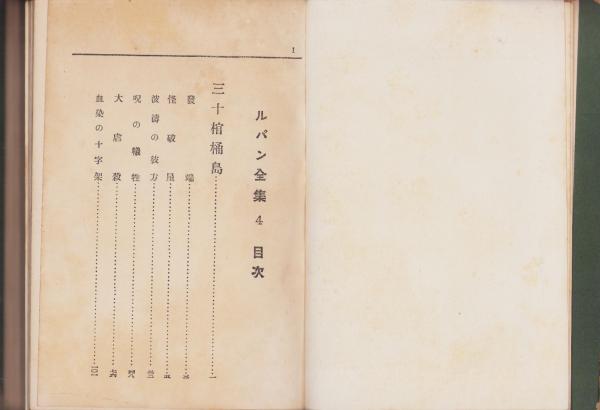 ルパン全集 4 目次
三十棺桶島 一
發端
怪破屋
波濤の彼方
呪の犠牲
大虐殺
血染の十字架 一〇一
1